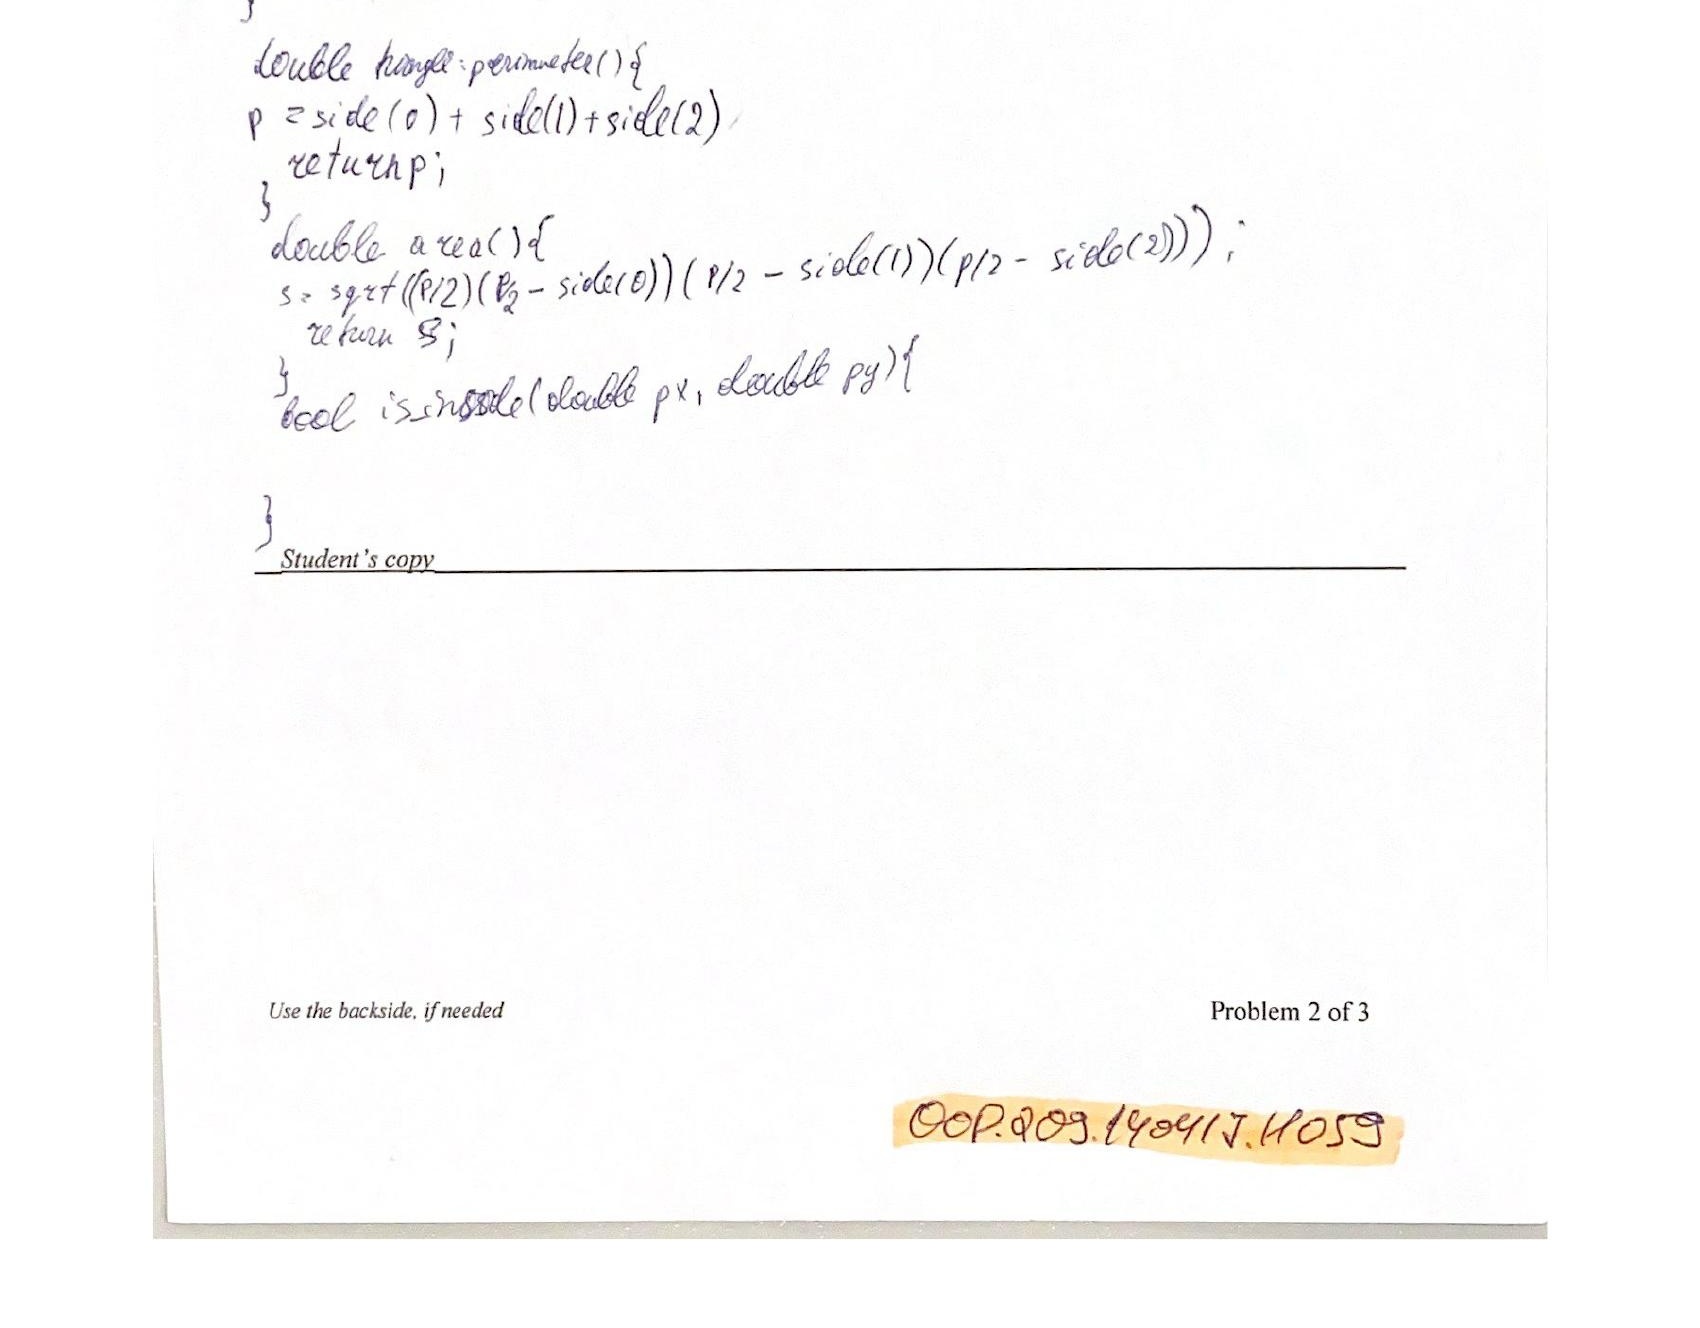 }
double triangle:perimeter(){
p = side(0) + side(1)+side(2)
return p;
}
double area(){
s= sqrt((P/2)(P/2 - side(0))(P/2 - side(1))(p/2 - side(2)));
return s;
}
bool is_inside(double px, double py){
}
Student's copy
Use the backside, if needed
Problem 2 of 3
OOP.209.140417.H059